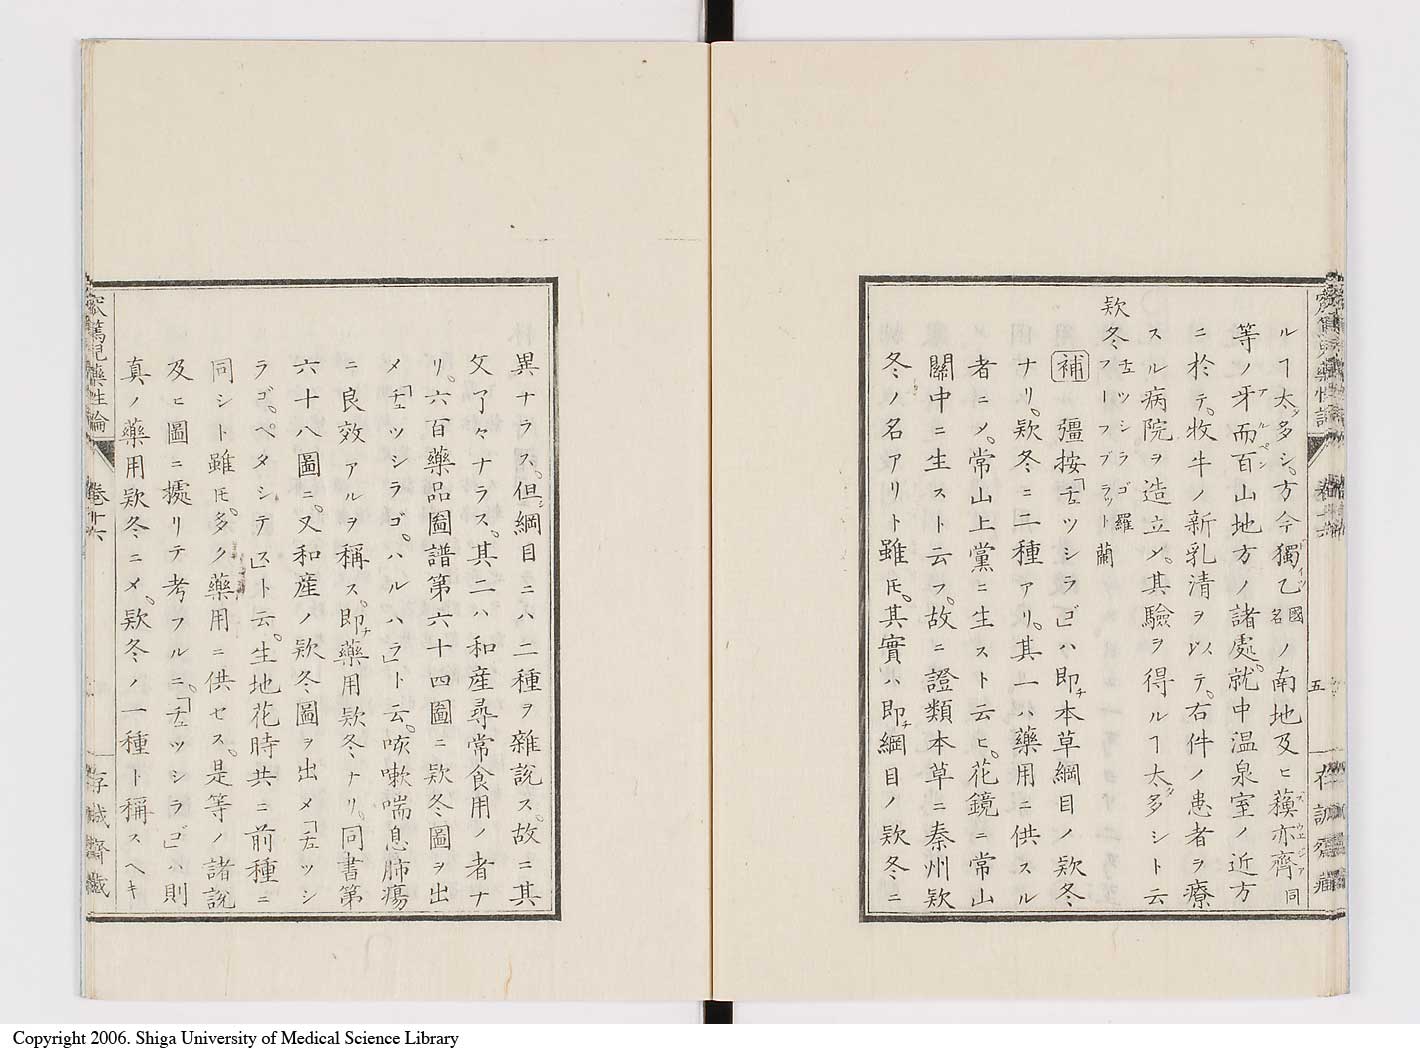 ルヿ太タ多シ。方今獨乙國名ノ南地及ヒ蘓亦齊同
等ノ牙而百山地方ノ諸處。就中温泉室ノ近方
ニ於テ。牧牛ノ新乳清ヲ以テ。右件ノ患者ヲ療
スル病院ヲ造立メ。其驗ヲ得ルヿ太タ多シト云
欵冬 チェツシラゴ羅 フーフブラット蘭
補 彊按「チェツシラゴ」ハ即チ本草綱目ノ欵冬
ナリ。欵冬ニ二種アリ。其一ハ藥用ニ供スル
者ニメ。常山上黨ニ生スト云ヒ。花鏡ニ常山
關中ニ生スト云フ。故ニ證類本草ニ秦州欵
冬ノ名アリト雖モ。其實ハ即チ綱目ノ欵冬ニ
五
存誠齋藏
異ナラス。但シ綱目ニハ二種ヲ雜説ス。故ニ其
文了々ナラス。其二ハ和産尋常食用ノ者ナ
リ。六百藥品圖譜第六十四圖ニ欵冬圖ヲ出
メ「チェツシラゴ。ハルハラ」ト云。咳嗽喘息肺瘍
ニ良效アルヲ稱ス。即チ藥用欵冬ナリ。同書第
六十八圖ニ。又和産ノ欵冬圖ヲ出メ「チェツシ
ラゴ。ペタシテ」ト云。生地花時共ニ前種ニ
同シト雖モ。多ク藥用ニ供セス。是等ノ諸説
及ヒ圖ニ據リテ考フルニ。「チェツシラゴ」ハ則
真ノ藥用欵冬ニメ。欵冬ノ一種ト稱スヘキ
篤兒藥性論 卷十六
存誠齋藏